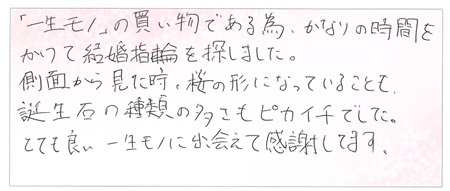 「一生モノ」の買い物である為、かなりの時間を
かけて結婚指輪を探しました。
側面から見た時、桜の形になっていることも、
誕生石の種類の多さもピカイチでした。
とても良い一生モノに出会えて感謝してます。